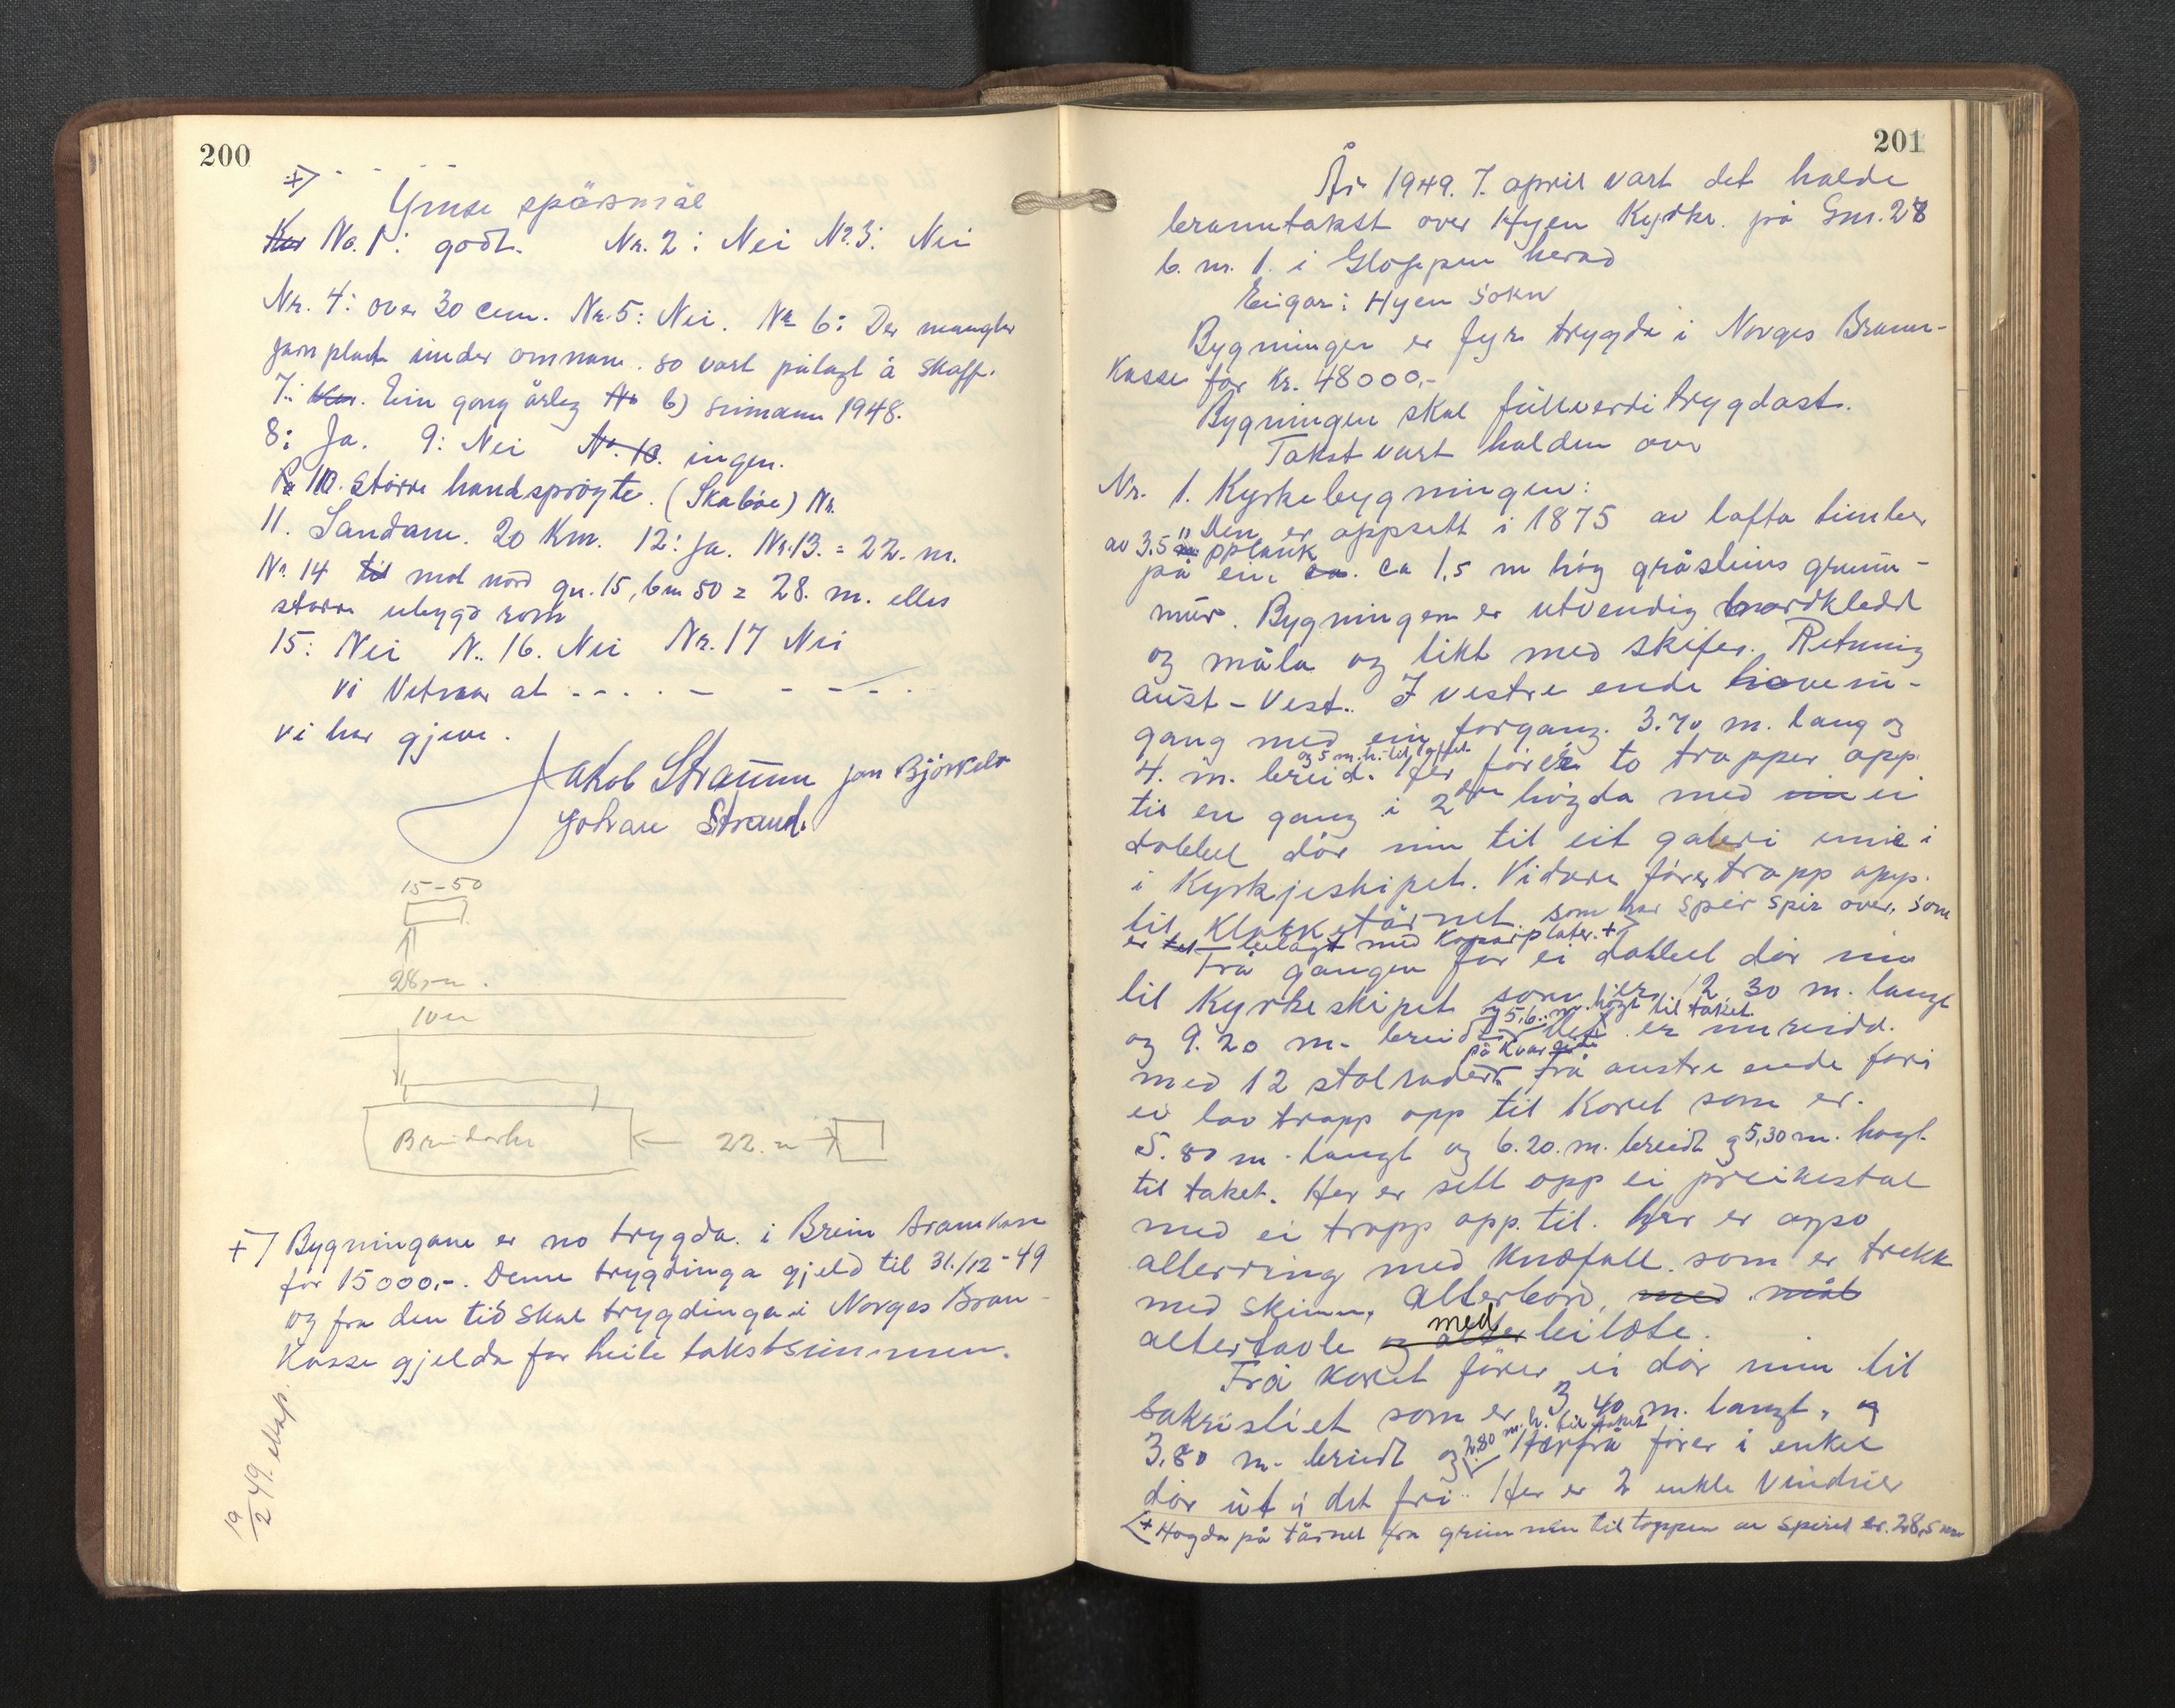 200
+) - - - -
Ymse spörsmål
No. 1: godt. Nr. 2: Nei Nr. 3: Nei
Nr. 4: over 30 cm. Nr. 5: Nei. Nr 6: Der mangler
jarnplate under omnane. so vart pålagt å skaffe.
7: Ein gong årleg b) sumaren 1948.
8: Ja. 9: Nei No. 10. ingen.
10. större handspröyte. (Skaböe) Nr.
11. Sandane. 20 Km. 12: Ja. Nr. 13. = 22. m.
Nr. 14 til mot nord gn. 15, bm 50 = 28. m. elles
storre ubygd rom
15: Nei N.. 16. Nei Nr. 17 Nei
vi Vitnar at - - - . - - - - - .
vi har gjeve.
Jakob Straume Jon Björkelo
Johan Strand.
15-50
28 m.
10 m
22. m
+) Bygningane er no trygda. i Breim brannkasse
for 15000.-. Denne trygdinga gjeld til 31./12-49
og fra den tid skal trygdinga i Norges Bran-
Kasse gjelda for heile takstsummen.
19/2 49.
201
År 1949. 7. april vart det halde
branntakst over Hyen Kyrkje. på Gnr. 28
b. nr. 1. i Gloppen herad
Eigar: Hyen sokn
Bygningen er fyrr trygda i Norges Brann-
Kasse for Kr. 48000.-
Bygningen skal fullverditrygdast.
Takst vart halden over
Nr. 1. Kyrkebygningen:
Den er oppsett i 1875 av lafta timber
av 3.5" pplank
på ein ca. ca 1,5 m hög gråsteins grunn-
mur. Bygningen er utvendig bordkledd
og måla og tekt med skifer. Retning
aust-Vest. I vestre ende hovein-
gang med ein forgang. 3.70 m. lang og
og 5 m. h. til loftet
4. m. breid. Her förer to trapper opp
til en gang i 2dre högda med ei
dobbel dör inn til eit galeri inne i
i Kyrkjeskipet. Vidare förer trapp opp.
til Klokketårnet som har spir spir over, som
er belagt med Koparplater. +)
Frå gangen for ei dobbel dör inn
til Kyrkeskipet som er 12.30 m. langt
og 5,6. m. högt til taket.
og 9.20 m. breidt. Det er innreidd.
på kvar side
med 12 stolrader. Frå austre ende fører
ei lav trapp opp til Koret som er.
5.80 m. langt og 6.20. m. breidt og 5,30 m. högt
til taket. Her er sett opp ei preikestol
med ei trapp opp. til. Her er ogso
alterring med Knefall. som er trekt
med skinn. Alterbord, med mål
altertavle og alter med bilæte.
Frå koret förer ei dör inn til
Sakristiet som er 3,40 m. langt, og
2.80 m. h. til taket
3.80 m. breidt og Herfrå förer i enkel
dör ut i det fri. Her er 2 enkle Vinduer
+ Högda på tårnet fra grunnen til toppen av spiret er. 28,5 m